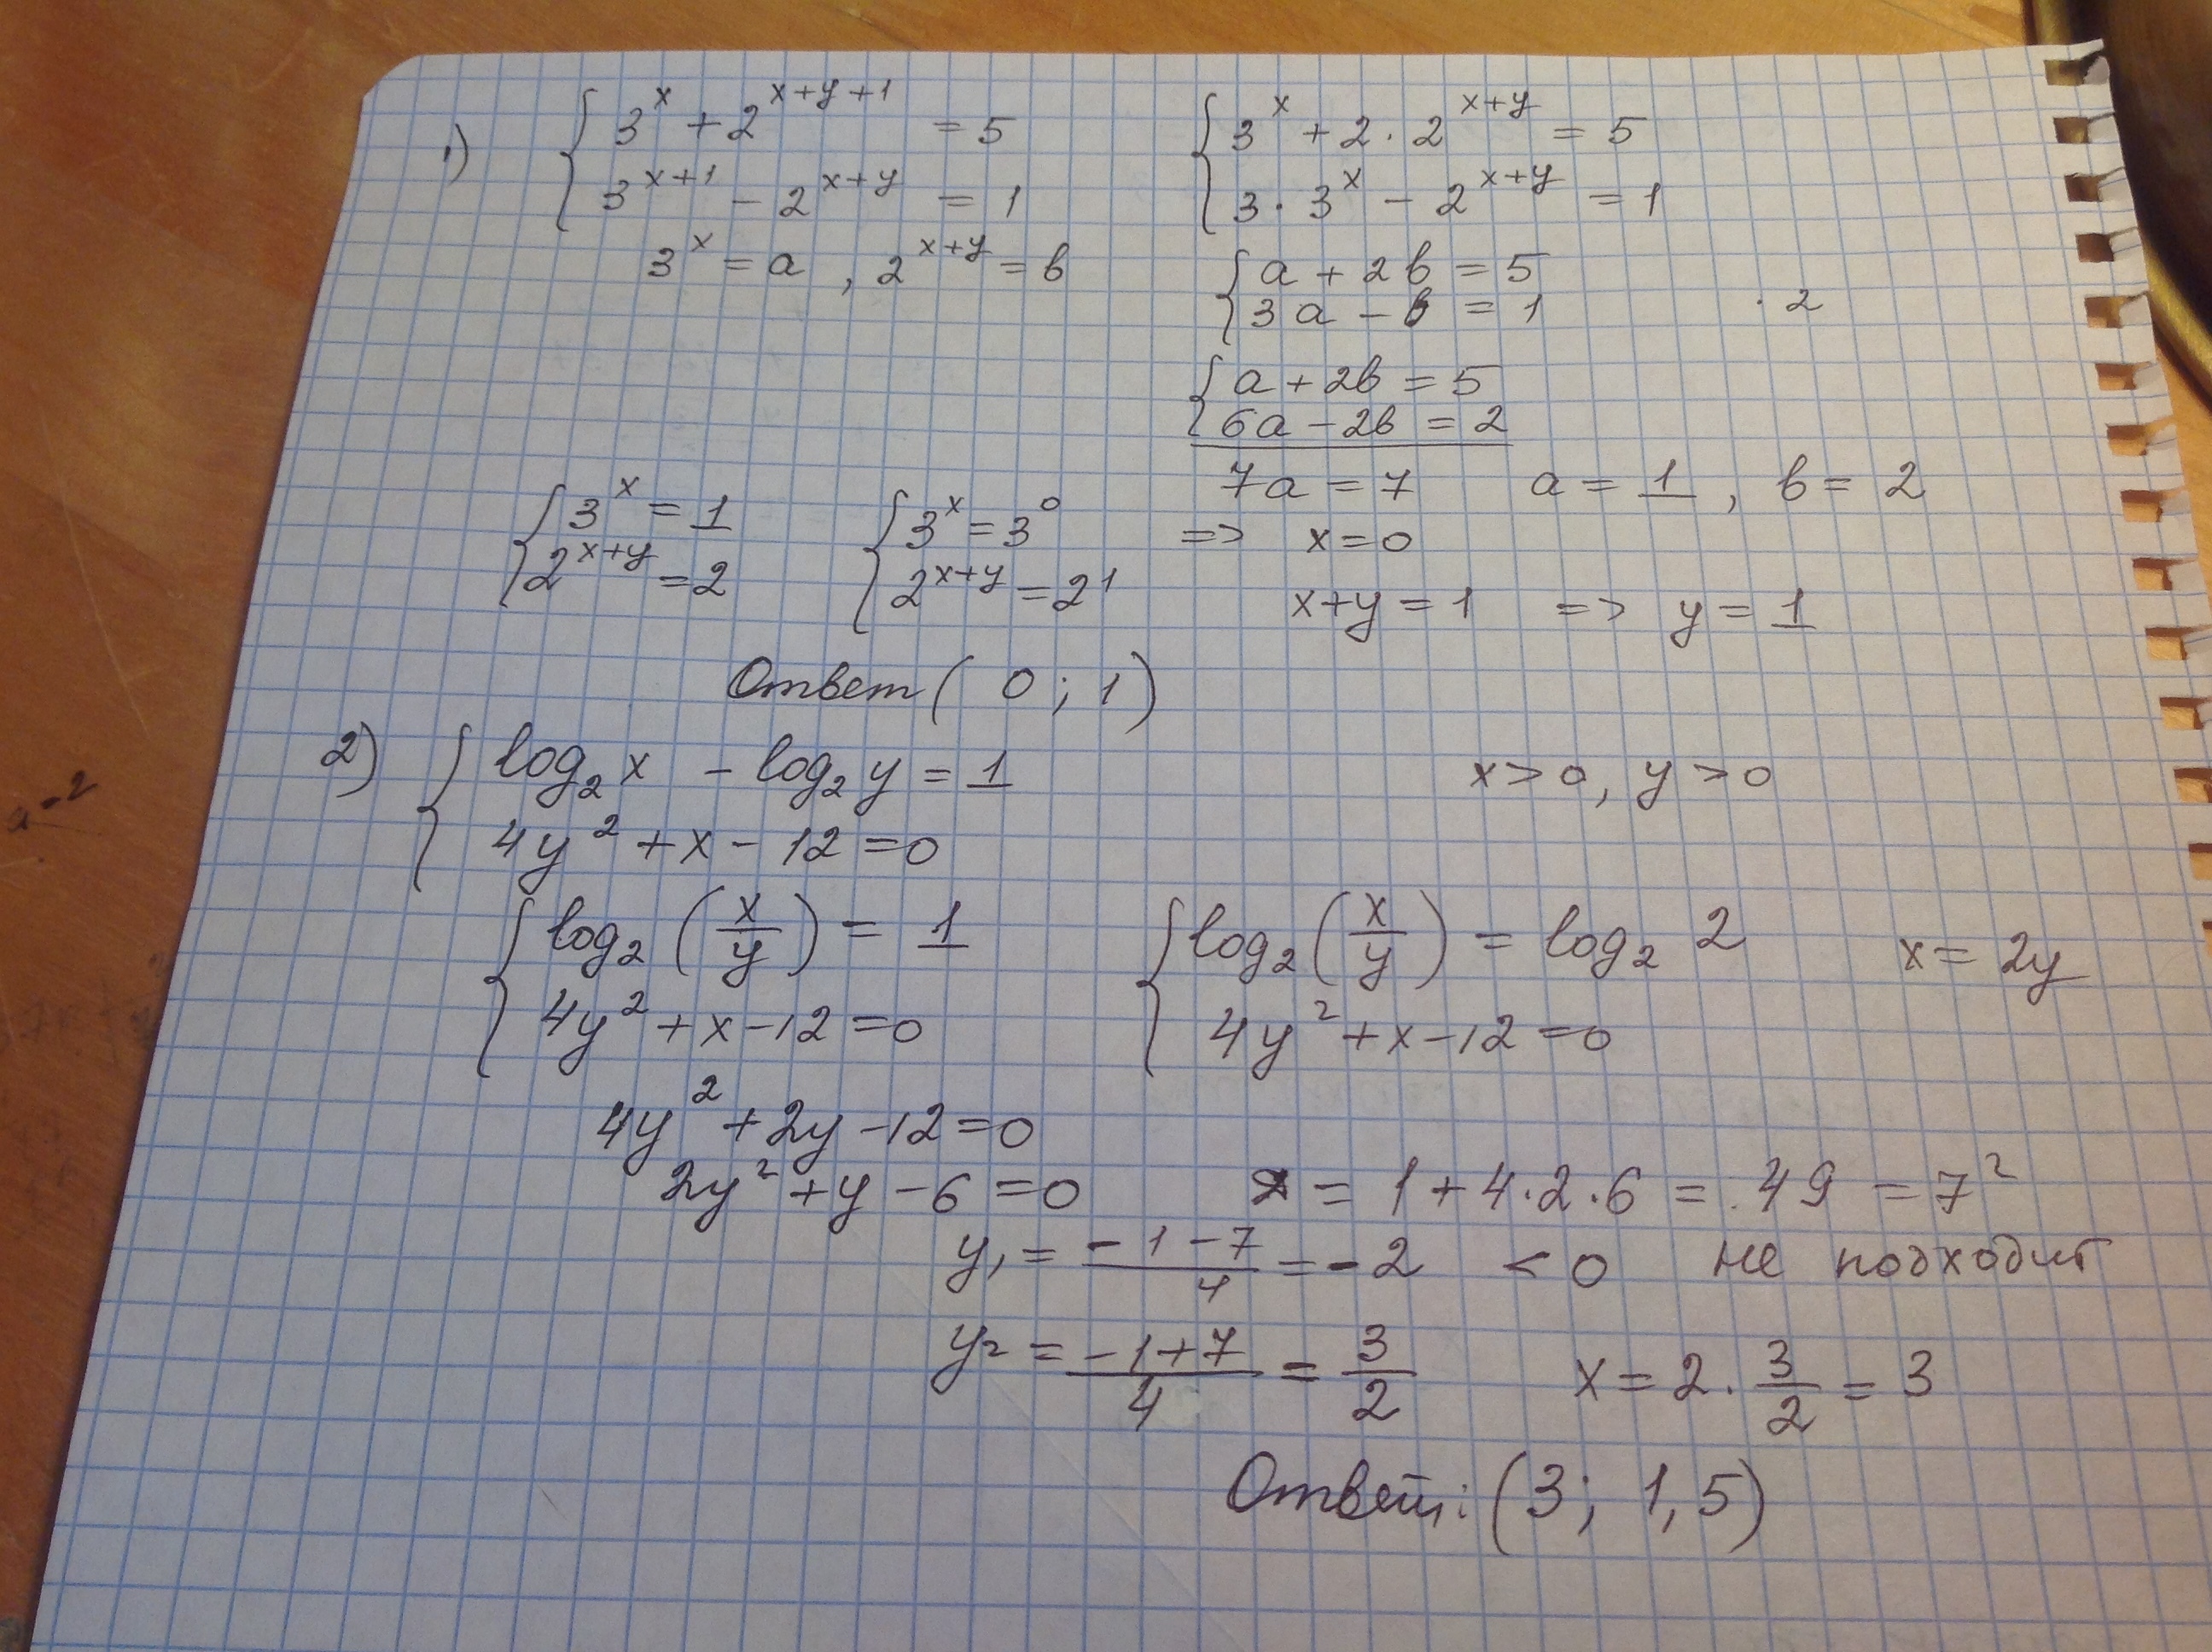 1) { 3^x + 2^{x+y+1} = 5
3^{x+1} - 2^{x+y} = 1
{ 3^x + 2 · 2^{x+y} = 5
3 · 3^x - 2^{x+y} = 1
3^x = a , 2^{x+y} = b
{ a + 2b = 5
3a - b = 1 · 2
{ a + 2b = 5
6a - 2b = 2
7a = 7 a = 1 , b = 2
{ 3^x = 1
2^{x+y} = 2
{ 3^x = 3^0
2^{x+y} = 2^1
=> x = 0
x+y = 1 => y = 1
Ответ ( 0 ; 1 )
2) { log₂ x - log₂ y = 1 x > 0, y > 0
4y² + x - 12 = 0
{ log₂ (x/y) = 1
4y² + x - 12 = 0
{ log₂ (x/y) = log₂ 2 x = 2y
4y² + x - 12 = 0
4y² + 2y - 12 = 0
2y² + y - 6 = 0 = 1 + 4·2·6 = 49 = 7²
y₁ = (-1-7)/4 = -2 < 0 не подходит
y₂ = (-1+7)/4 = 3/2 x = 2 · 3/2 = 3
Ответ: (3; 1,5)